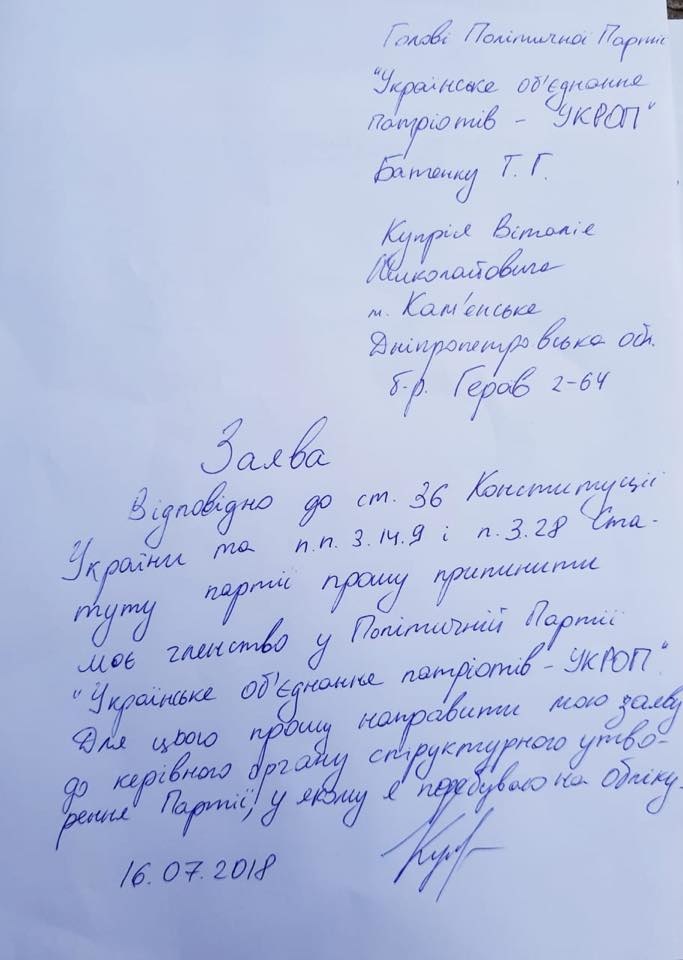 Голові Політичної Партії
"Українське об'єднання
патріотів - УКРОП"
Батенку Т. Г.
Купрія Віталія
Миколайовича
м. Кам'енське
Дніпропетровська обл.
б-р. Героїв 2-64
Заява
Відповідно до ст. 36 Конституції
України та п.п. 3.14.9 і п. 3.28 Ста-
туту партії прошу припинити
моє членство у Політичній Партії
"Українське об'єднання патріотів - УКРОП".
Для цього прошу направити мою заяву
до керівного органу структурного утво-
рення Партії, у якому я перебуваю на обліку.
16.07.2018